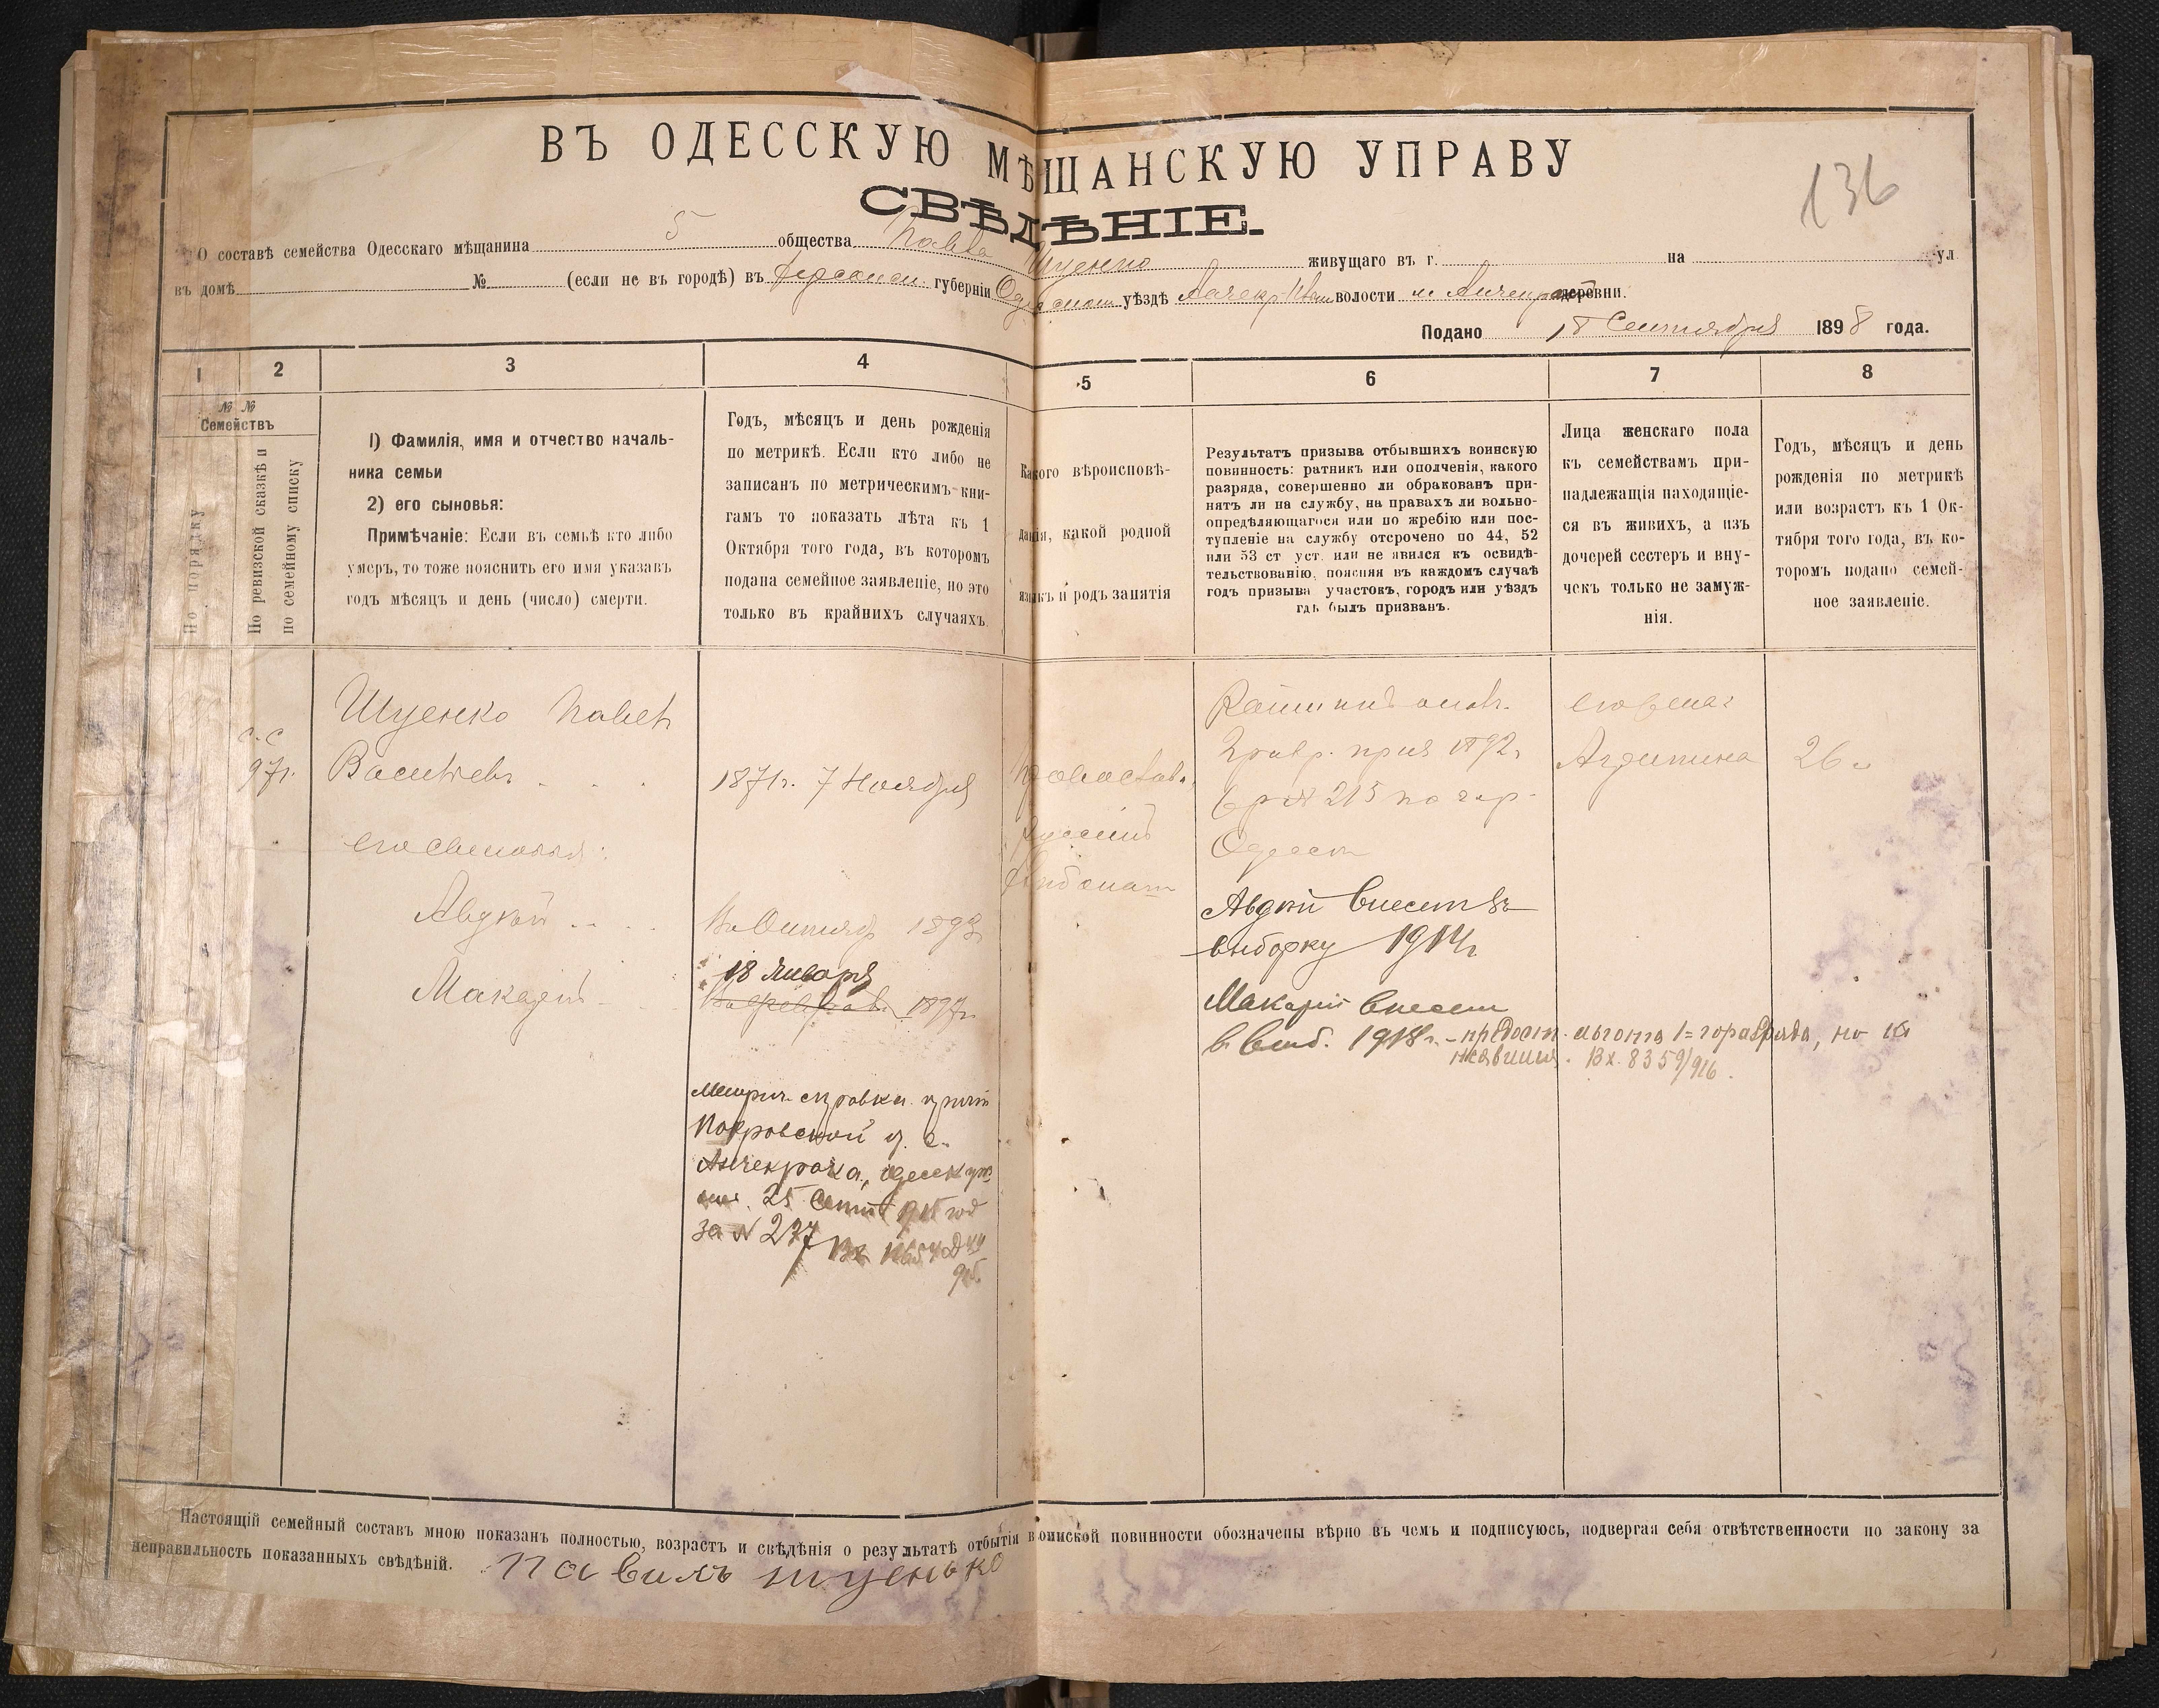 ВЪ ОДЕССКУЮ МѢЩАНСКУЮ УПРАВУ
136
СВѢДѢНІЕ.
О составѣ семейства Одесскаго мѣщанина 5 общества Павла Шуенко живущаго въ г. на ул
въ домѣ № (если не въ городѣ) въ Херсонск. губерніи Одесском уѣздѣ волости м Анчекрак деревни.
Подано 18 Сентября 1898 года.
1 2 3 4 5 6 7 8
№ № Семействъ
По порядку
По ревизской сказкѣ и
по семейному списку
1) Фамилія, имя и отчество началь-
ника семьи
2) его сыновья:
Примѣчаніе: Если въ семьѣ кто либо
умеръ, то тоже пояснить его имя указавъ
годъ мѣсяцъ и день (число) смерти.
Годъ, мѣсяцъ и день рожденія
по метрикѣ. Если кто либо не
записанъ по метрическимъ кни-
гамъ то показать лѣта къ 1
Октября того года, въ которомъ
подана семейное заявленіе, но это
только въ крайнихъ случаяхъ.
Какого вѣроисповѣ-
данія, какой родной
языкъ и родъ занятія
Результатъ призыва отбывшихъ воинскую
повинность: ратникъ или ополченія, какого
разряда, совершенно ли обракованъ при-
нятъ ли на службу, на правахъ ли вольно-
опредѣляющагося или по жребію или пос-
тупленіе на службу отсрочено по 44, 52
или 53 ст уст. или не явился къ освидѣ-
тельствованію, поясняя въ каждомъ случаѣ
годъ призыва участокъ, городъ или уѣздъ
гдѣ былъ призванъ.
Лица женскаго пола
къ семействамъ при-
надлежащія находящіе-
ся въ живихъ, а изъ
дочерей сестеръ и вну-
чекъ только не замуж-
нія.
Годъ, мѣсяцъ и день
рожденія по метрикѣ
или возрастъ къ 1 Ок-
тября того года, въ ко-
торомъ подано семей-
ное заявленіе.
Шуенко Павел
с. с
97г.
Васильев
1871г. 7 Ноября
Православ.
Русский
Ратникъ опол.
2 разр. приз 1892г
№ 215 по гор.
Одессы
его жена:
26
его сыновья:
Авдкий
Октябр 1893
Макарій
18 Января
1897г
Авдкий внесен въ
выборку 1914г
Макарій внесен
в выб. 1918г. - предост. льгота 1=го разряда, но
Вх. 8359/916.
Метрич. справка причт
Покровской ц. с.
Анчекрака, Одесск
25 Сент 1915 год
за № 237
Настоящій семейный составъ мною показанъ полностью, возрастъ и свѣдѣнія о результатѣ отбытія воинской повинности обозначены вѣрно въ чемъ и подписуюсь, подвергая себя отвѣтственности по закону за
неправильность показанныхъ свѣдѣній. Павилъ шуенько